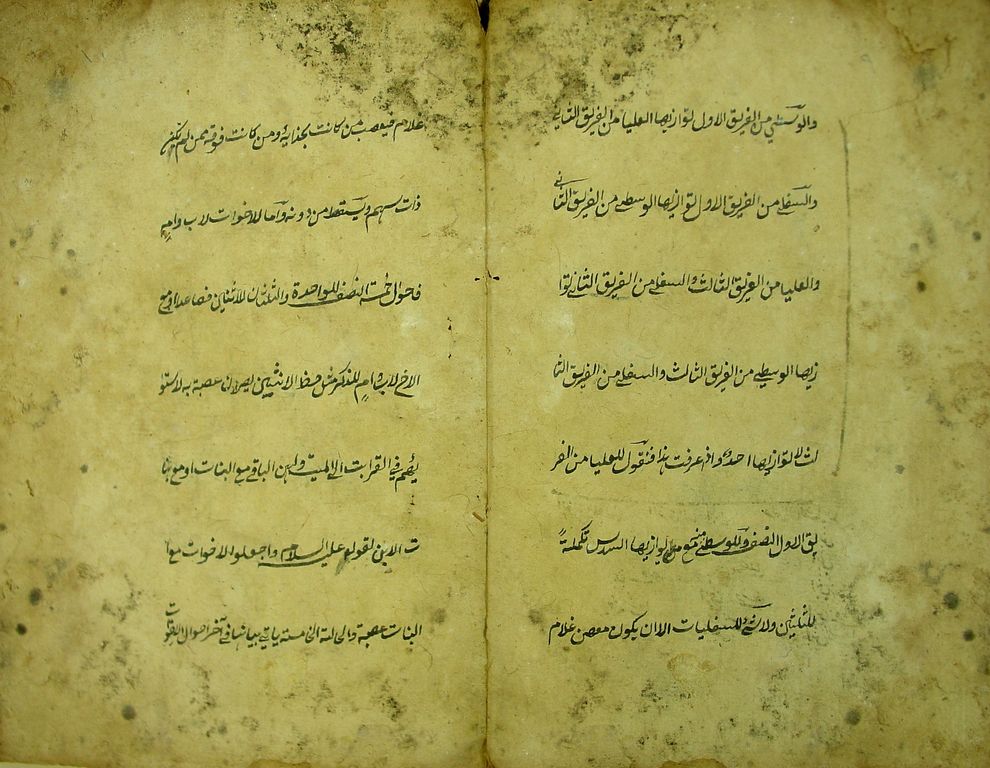 والوسطى من الفريق الاول توازيها العليا من الفريق الثاني
والسفلى من الفريق الاول توازيها الوسطى من الفريق الثاني
والعليا من الفريق الثالث والسفلى من الفريق الثاني توا
زيها الوسطى من الفريق الثالث والسفلى من الفريق الثا
لث لا توازيها احد واذ عرفت هذا فنقول للعليا من الفر
يق الاول النصف وللوسطى مع من يوازيها السدس تكملة
للثلثين ولا شئ للسفليات الا ان يكون معهن غلام
غلام فيعصب من كانت بحذايه ومن كانت فوقه ممن لم تكن
ذات سهم ويسقط من دونه واما للاخوات لاب وام
فاحوال خمس النصف للواحدة والثلثان للاثنين فصاعدا ومع
الاخ لاب وام للذكر مثل حظ الانثيين يصرن عصبة به لاستو
ائهم في القرابت الى الميت ولهن الباقي مع البنات او مع بنا
ت الابن لقوله عليه السلام واجعلوا الاخوات مع
البنات عصبة والحالة الخامسة ياتي بيانها في آخر احوال العلات